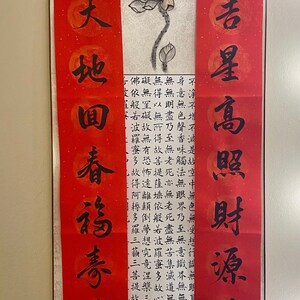 吉星高照財源
不淨不增不減是故空中無色無受
身意無色聲香味觸法無眼界乃至無意識界無無
無明盡乃至無老死亦無老死盡無苦集滅道無
無得以無所得故菩提薩埵依般若波羅蜜多故
礙無罣礙故無有恐怖遠離顛倒夢想究竟涅槃三
佛依般若波羅蜜多故得阿耨多羅三藐三菩提故
大地回春福壽